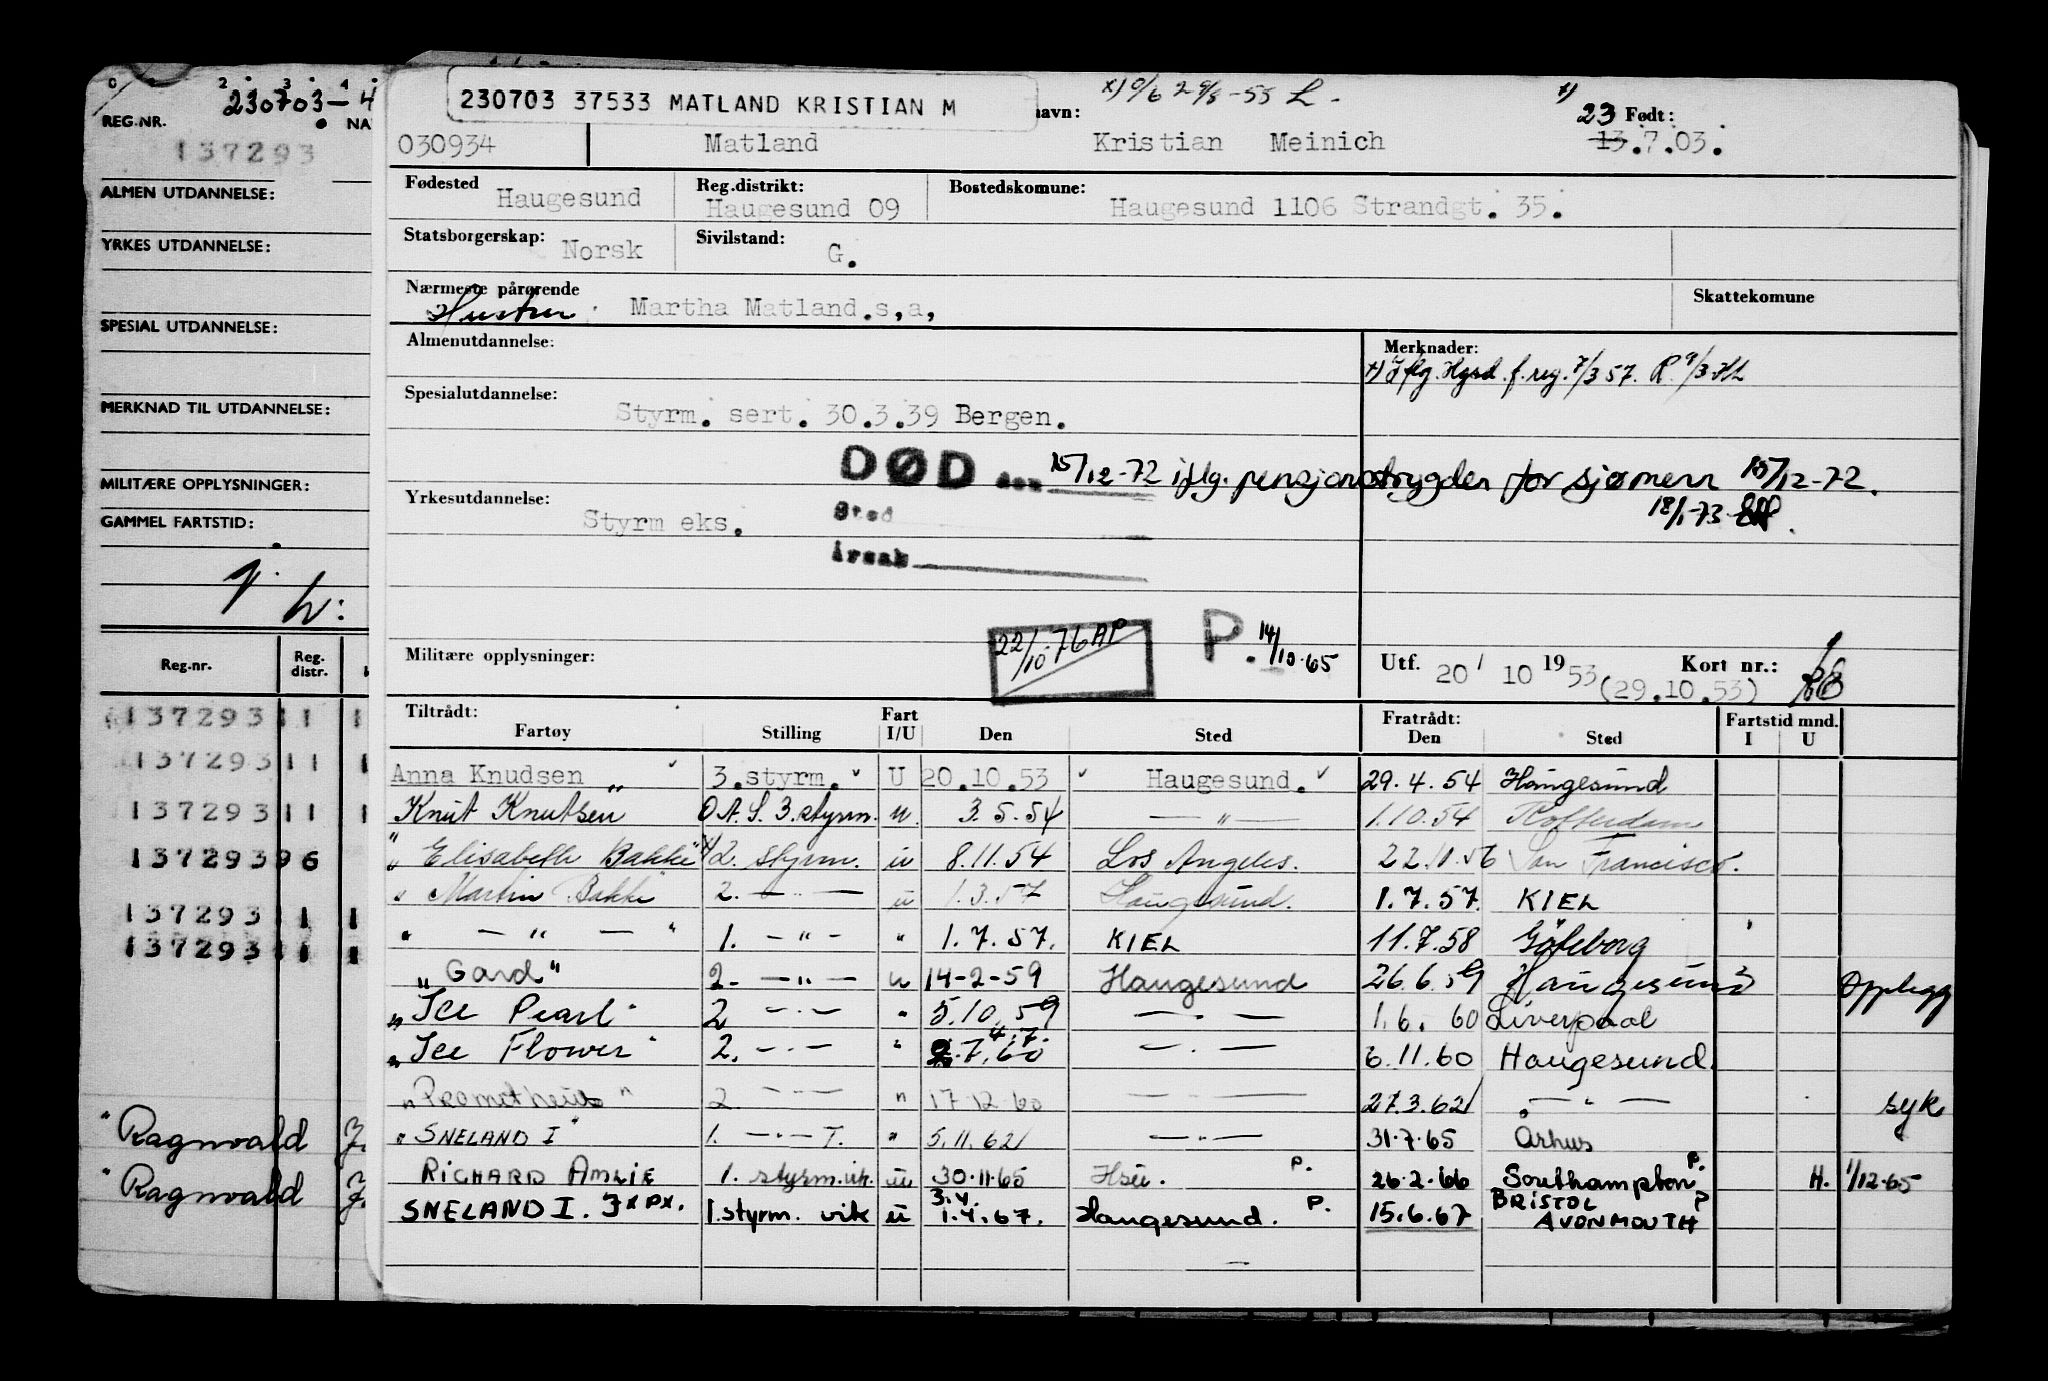 230703-4
REG.NR. NA
137293
ALMEN UTDANNELSE:
YRKES UTDANNELSE:
SPESIAL UTDANNELSE:
MERKNAD TIL UTDANNELSE:
MILITÆRE OPPLYSNINGER:
GAMMEL FARTSTID:
Reg.nr. Reg. distr.
137293 11 1
137293 11 1
137293 11 1
137293 96
137293 11 1
137293 11 1
" Ragnvald J.
" Ragnvald J.
230703 37533 MATLAND KRISTIAN M
navn: x) 9/6 29/8-55 L.
x) 23 Født:
030934 Matland Kristian Meinich 13.7.03.
Fødested Haugesund Reg.distrikt: Haugesund 09 Bostedskomune: Haugesund 1106 Strandgt. 35.
Statsborgerskap: Norsk Sivilstand: G.
Nærmeste pårørende Skattekomune
Hustru Martha Matland.s,a,
Almenutdannelse: Merknader:
x) Iflg. Hgsd. f. reg. 7/3 57. R 9/3
Spesialutdannelse: Styrm. sert. 30.3.39 Bergen.
DØD den 15/12-72 iflg. pensjonstrygden for sjømenn 15/12-72.
18/1-73
Yrkesutdannelse: Styrm eks. Sted
Årsak
22/10-76 AP P. 14/10-65
Militære opplysninger: Utf. 20/ 10 1953 (29.10.53) Kort nr.:
Tiltrådt: Fratrådt: Fartstid mnd.
Fartøy Stilling Fart I/U Den Sted Den Sted I U
Anna Knudsen " 3.styrm. U 20.10.53 Haugesund. 29.4.54 Haugesund
Knut Knutsen O.A.S. 3.styrm. u. 3.5.54 — " — 1.10.54 Rotterdam
" Elisabeth Bakke x) 2. styrm. u 8.11.54 Los Angeles. 22.11.56 San Francisco.
" Martin Bakke 2. — " — u 1.3.57 Haugesund. 1.7.57. KIEL
" — " — " 1. — " — " 1.7.57. KIEL 11.7.58 Göteborg
"Gard" 2. — " — u 14-2-59 Haugesund 26.6.59 Haugesund Opplegg
" Ice Pearl " 2 — " — " 5.10.59 — " — 1.6.60 Liverpool
" Ice Flower " 2. — " — " 4.7. 7.60 — " — 6.11.60 Haugesund
" Prometheus " 2 — " — " 17.12.60 — " — 27.3.62 — " — syk
" SNELAND I " 1. — " — T. " 5.11.62 — " — 31.7.65 Århus
RICHARD AMLIE 1. styrm.vik. u 30.11.65 Hsu. P. 26.2.66 Southampton P. H. 1/12-65
SNELAND I. 1.styrm. vik u 3.4. 1.4.67. Haugesund. P. 15.6.67 BRISTOL P
AVONMOUTH